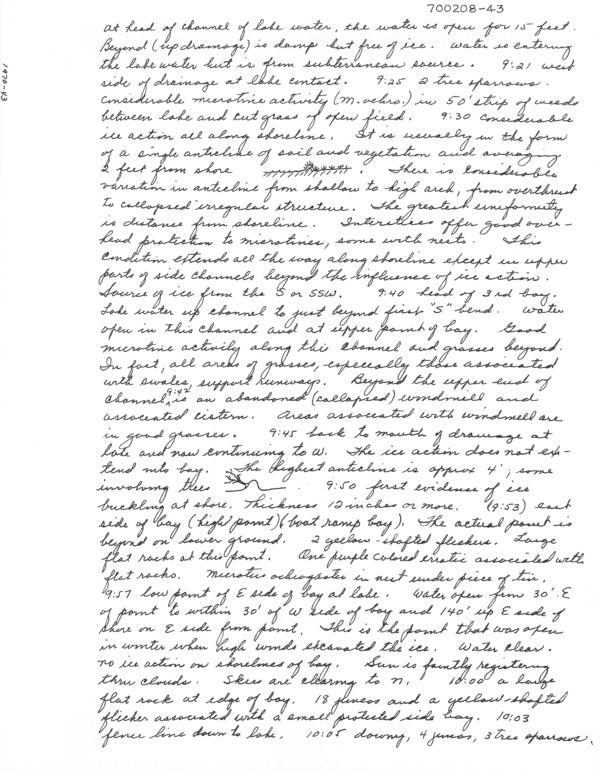 700208-43
1970-43
at head of channel of lake water, the water is open for 15 feet.
Beyond (up drainage) is damp but free of ice. Water is entering
the lake water but is from subterranean source. 9:21 west
side of drainage at lake contact. 9:25 2 tree sparrows.
Considerable microtine activity (M. ochro.) in 50' strip of weeds
between lake and cut grass of open field. 9:30 considerable
ice action all along shoreline. It is usually in the form
of a single anticline of soil and vegetation and averaging
2 feet from shore . There is considerable
variation in anticline from shallow to high arch, from overthrust
to collapsed irregular structure. The greatest uniformity
is distance from shoreline. Interstices offer good over-
head protection to microtines, some with nests. This
condition extends all the way along shoreline except in upper
parts of side channels beyond the influence of ice action.
Source of ice from the S or SSW. 9:40 head of 3rd bay.
Lake water up channel to just beyond first "S" bend. Water
open in this channel and at upper point of bay. Good
microtine activity along this channel and grasses beyond.
In fact, all areas of grasses, especially those associated
with swales, support runways. Beyond the upper end of
channel, 9:42 is an abandoned (collapsed) windmill and
associated cistern. Areas associated with windmill are
in good grasses. 9:45 back to mouth of drainage at
lake and now continuing to W. The ice action does not ex-
tend into bay. The highest anticline is approx 4'; some
involving trees . 9:50 first evidence of ice
buckling at shore. Thickness 12 inches or more. (9:53) east
side of bay (high point) (boat ramp bay). The actual point is
beyond on lower ground. 2 yellow-shafted flickers. Large
flat rocks at this point. One purple colored erratic associated with
flat rocks. Microtus ochrogaster in nest under piece of tin.
9:57 low point of E side of bay at lake. Water open from 30' E
of point to within 30' of W side of bay and 140' up E side of
shore on E side from point. This is the point that was open
in winter when high winds excavated the ice. Water clear.
no ice action on shorelines of bay. Sun is faintly registering
thru clouds. Skies are clearing to N. 10:00 a large
flat rock at edge of bay. 18 juncos and a yellow-shafted
flicker associated with a small protected side bay. 10:03
fence line down to lake. 10:05 downy, 4 juncos, 3 tree sparrows.